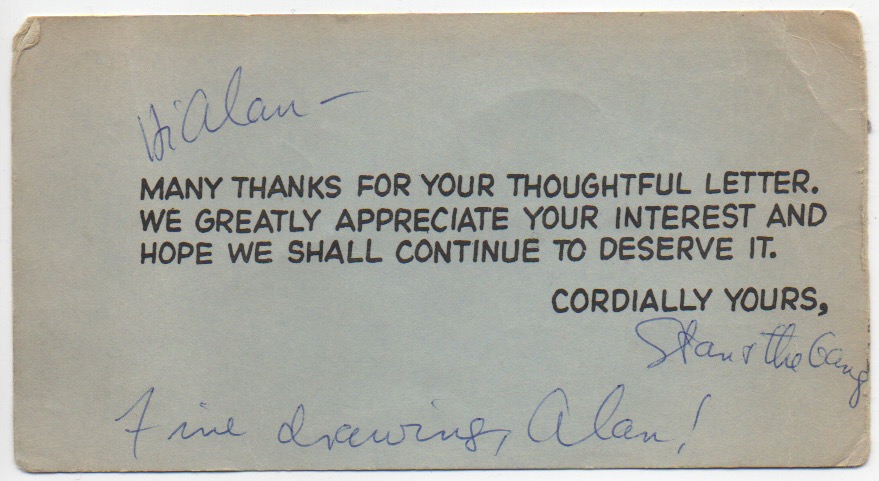 Hi Alan —
MANY THANKS FOR YOUR THOUGHTFUL LETTER.
WE GREATLY APPRECIATE YOUR INTEREST AND
HOPE WE SHALL CONTINUE TO DESERVE IT.
CORDIALLY YOURS,
Stan & the Gang
Fine drawing, Alan!